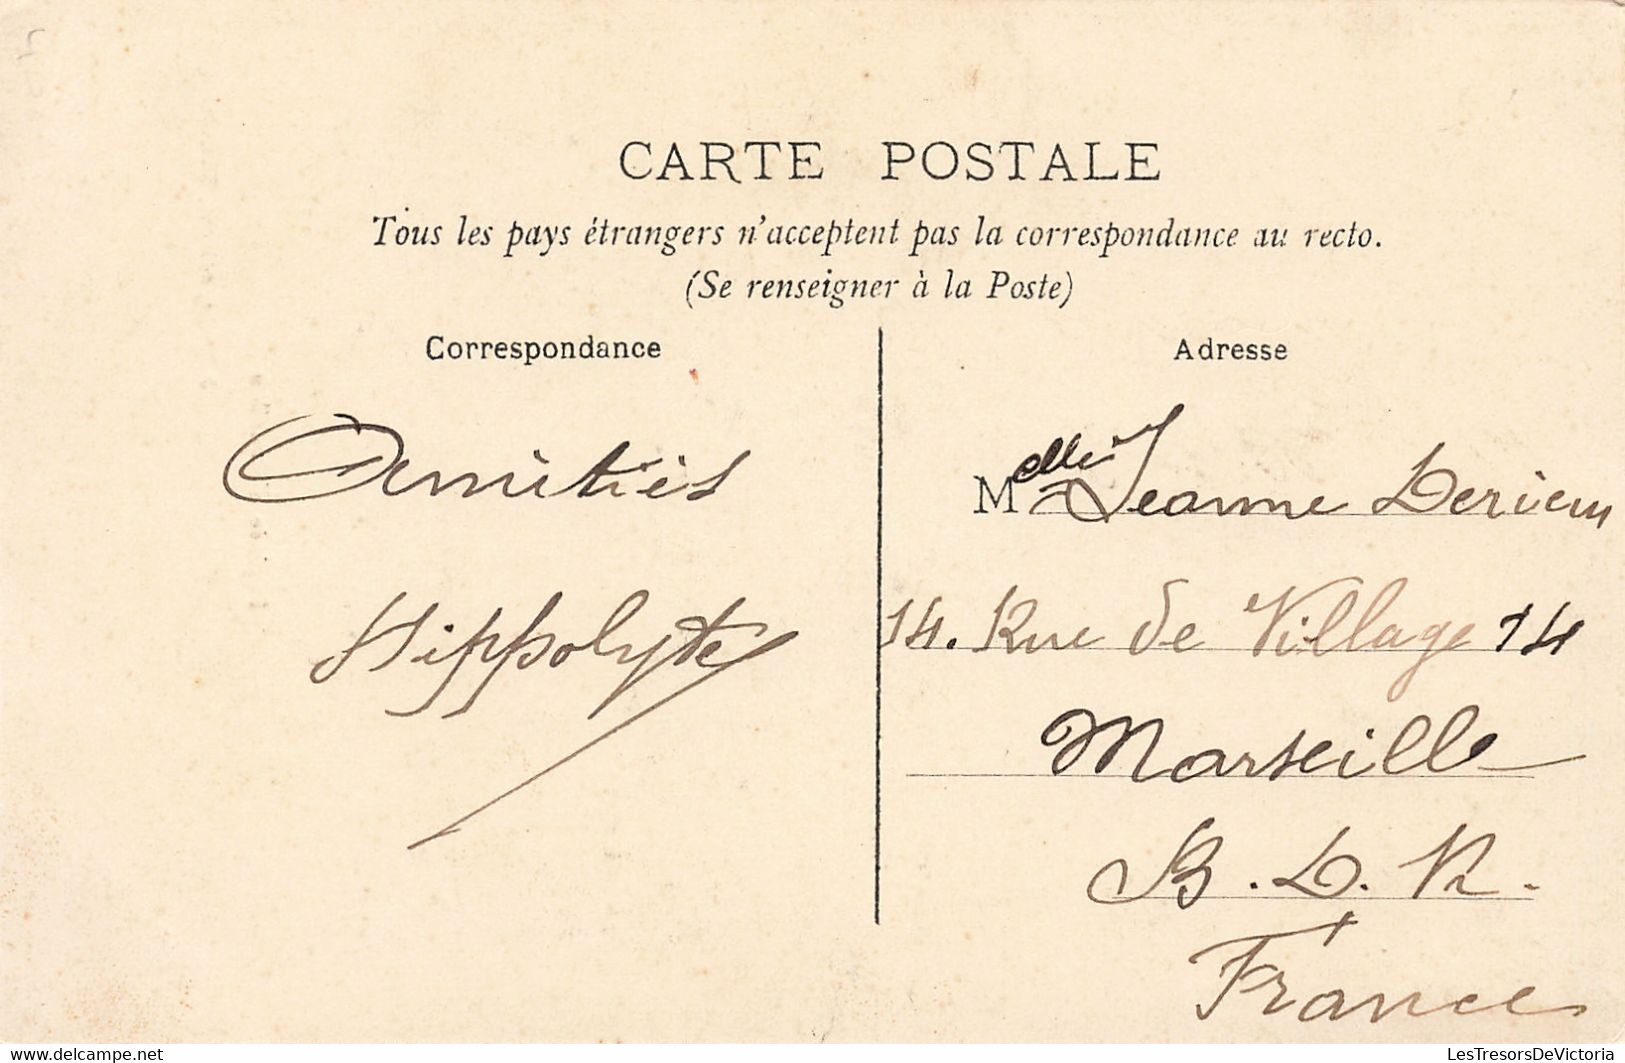 CARTE POSTALE
Tous les pays étrangers n'acceptent pas la correspondance au recto.
(Se renseigner à la Poste)
Correspondance
Amitiés
Hippolyte
Adresse
Melle Jeanne
14. Rue de Village 14
Marseille
B. D. R.
France
www.delcampe.net
LesTresorsDeVictoria